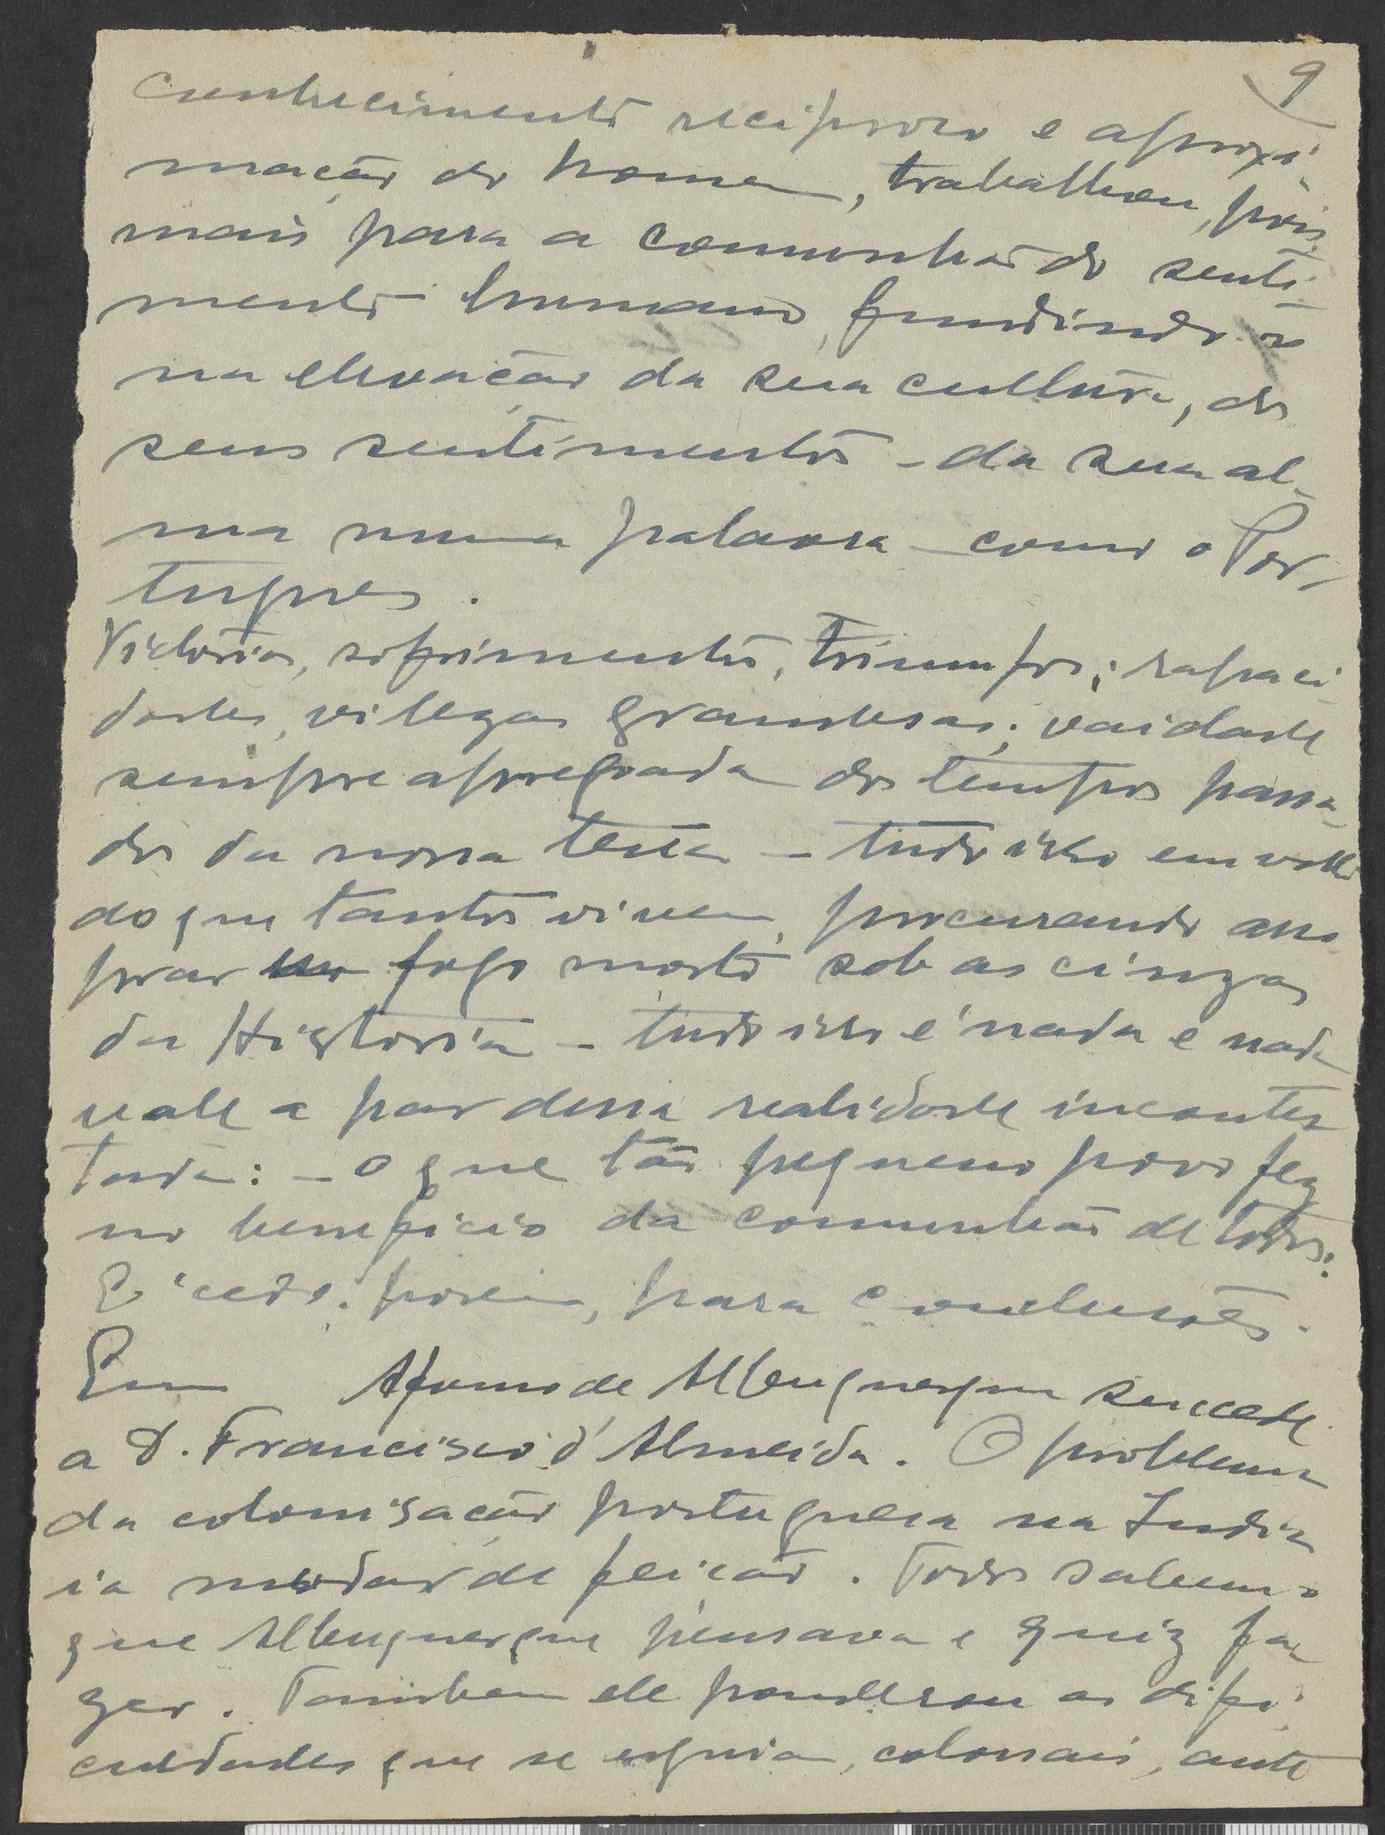 9
conhecimento reciproco e aproxi-
mação do homem, trabalhou, pois,
mais para a comunhão do senti-
mento humano, fundindo-os
na elevação da sua cultura, dos
seus sentimentos - da sua al-
ma numa palavra - como o Por-
tugues.
Victorias, sofrimentos, triumfos; rapaci
dades, vilezas grandesas; vaidade
sempre apregoada dos tempos passa-
dos da nossa terra - tudo isso em volta
do que tantos vivem, procurando asso
prar fogo morto sob as cinzas
da Historia - tudo isso é nada e nada
vale a par dessa realidade incontes
tada: - o que tão pequeno povo fez
no beneficio da comunhão de todos.
E' cedo, porem, para conclusões.
Em Afonso de Albuquerque succede
a D. Francisco d'Almeida. O problema
da colonisação portuguesa na India
ia mudar de feição. Todos sabem o
que Albuquerque pensava e quiz fa
zer. Tambem ele ponderou as difi
culdades que se erguiam, colossais, ante